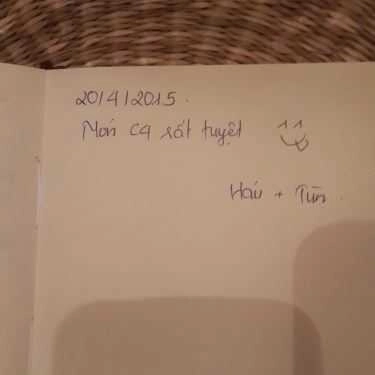 20/4/2015.
Món C4 rất tuyệt
Hậu + Tiên.